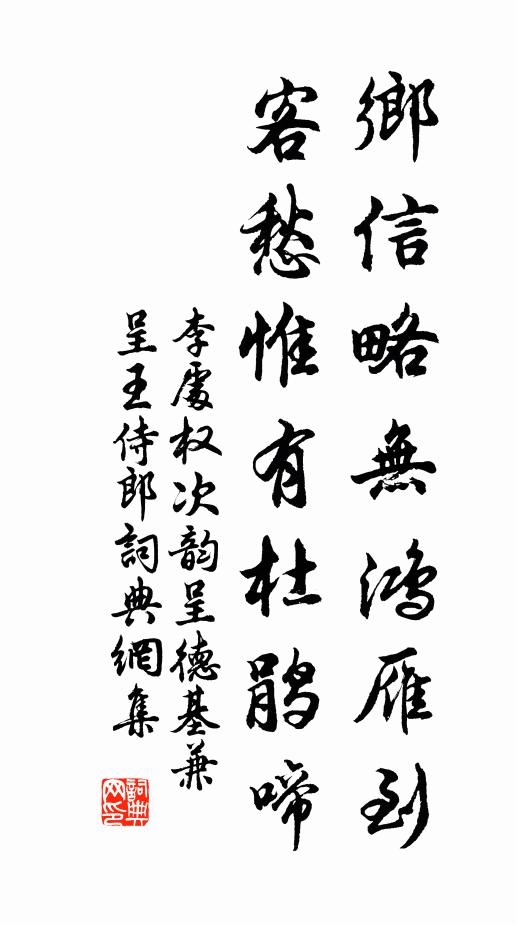 鄉信略無鴻雁到
客愁惟有杜鹃啼
李處权次韵呈德基兼
呈王侍郎詞典網集
詞典
网印